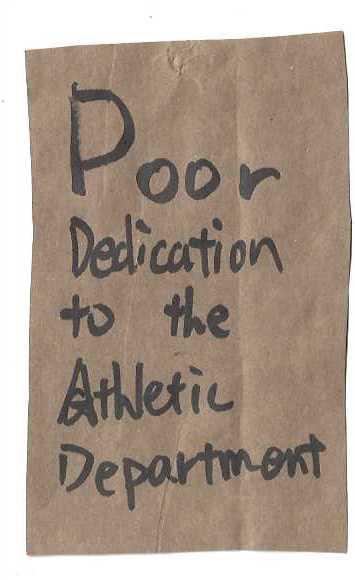 Poor
Dedication
to the
Athletic
Department